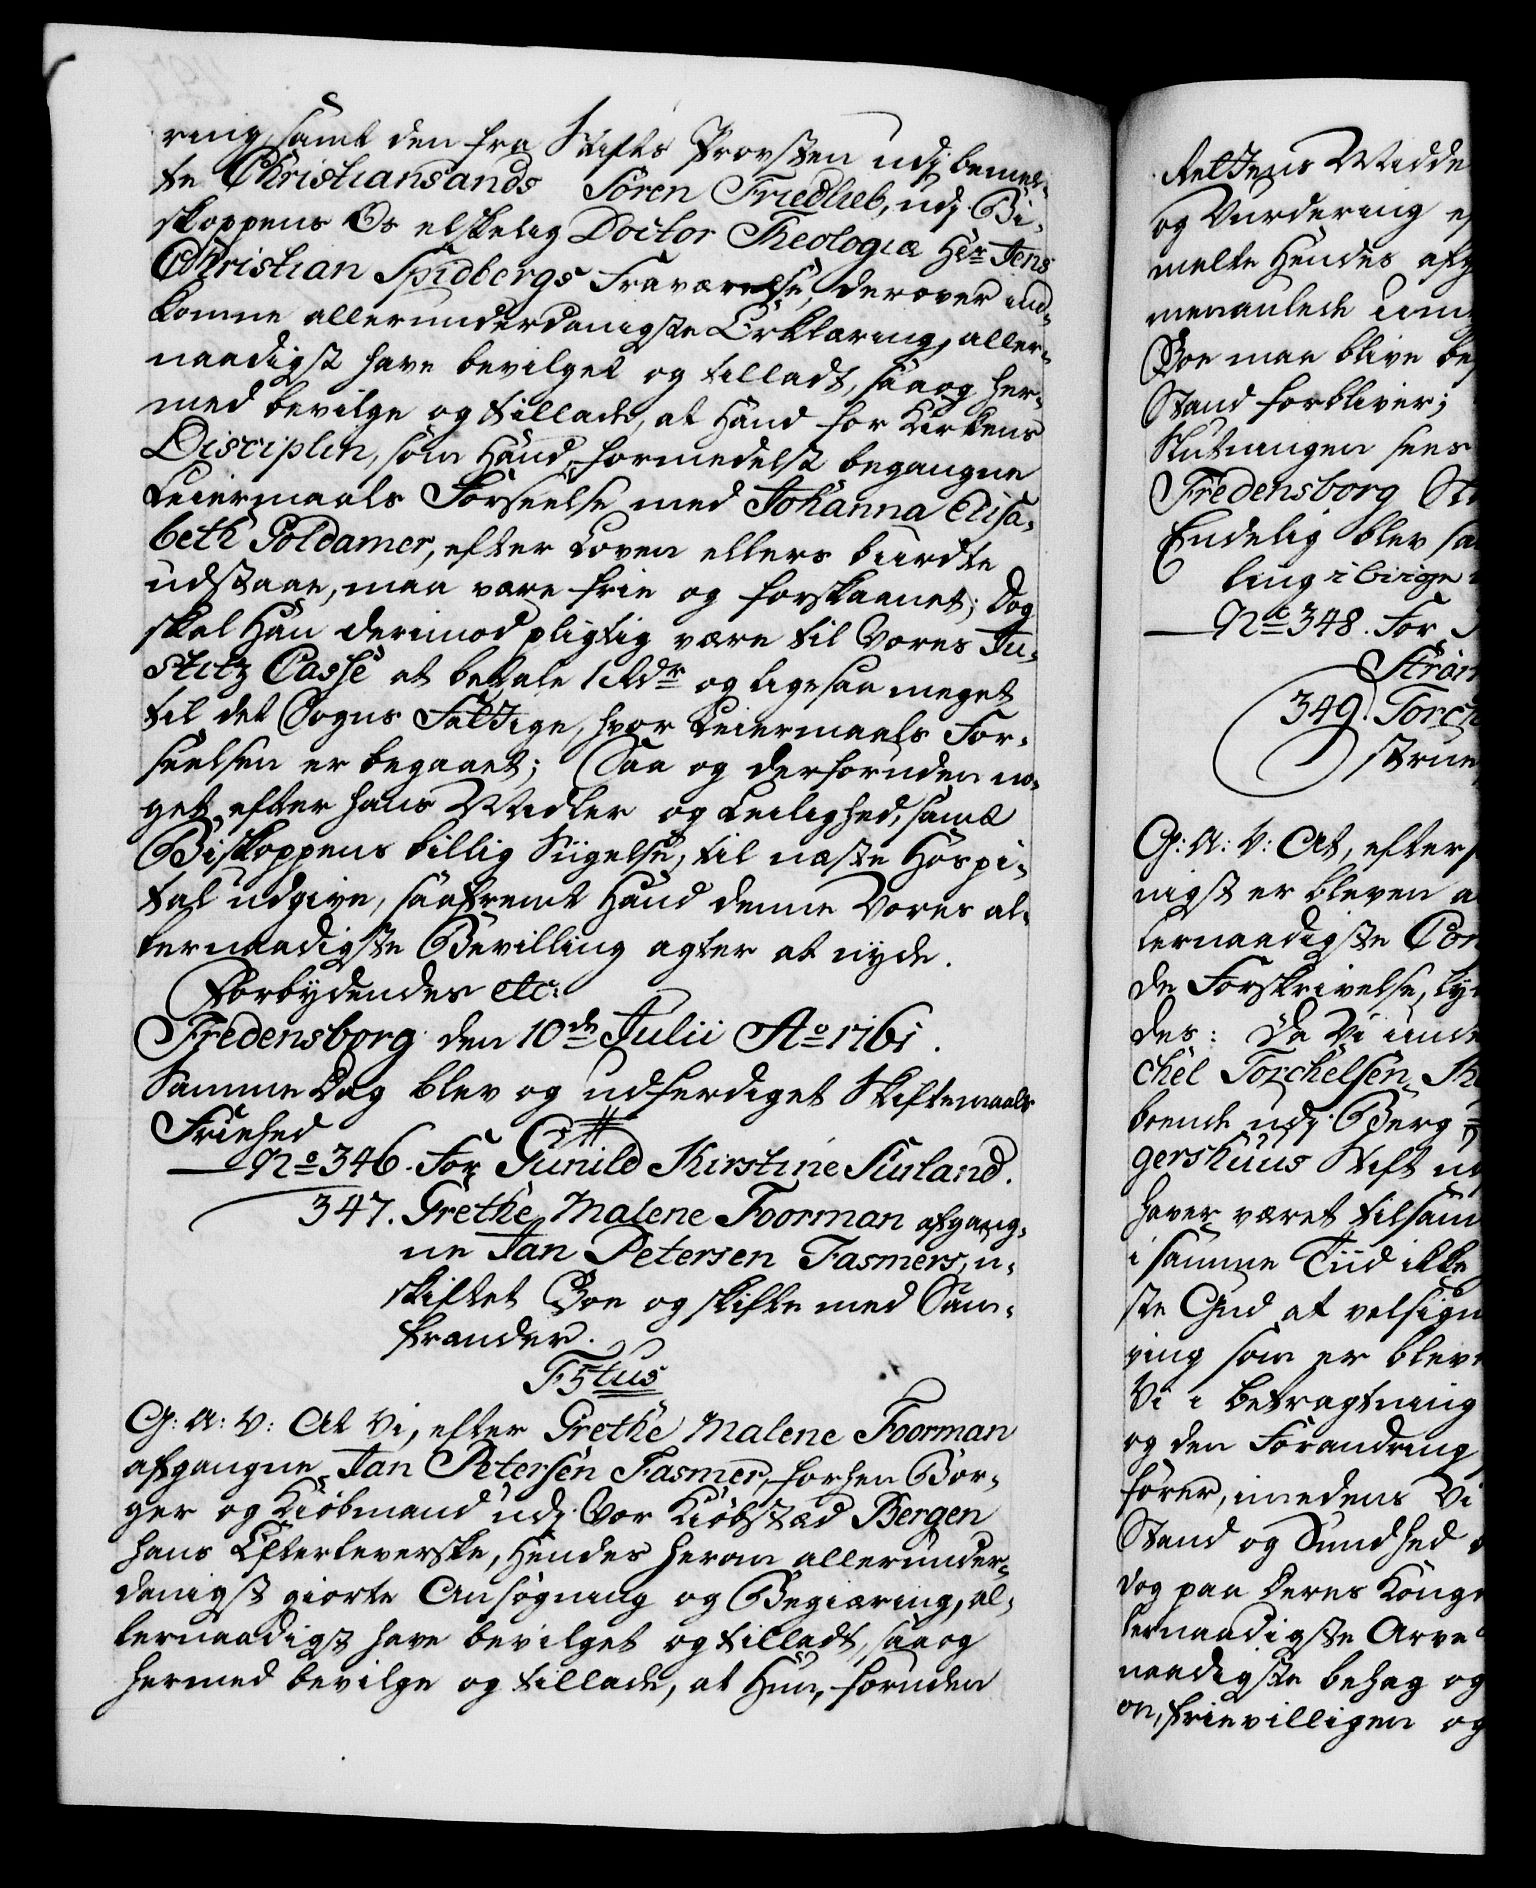 ring, samt den fra Stifts Provsten udj bemel-
te Christiansands Soren Friedlieb, udj Bi-
skoppens Os elskelig Doctor Theologiæ Her Jens
Christian Spidbergs Fraværelse, derover ind-
komne allerunderdanigste Erklæring, aller-
naadigst have bevilget og tilladt, saa og her-
med bevilge og tillade, at Hand for Kirkens
Disciplin, som Hand, formedelst begangne
Leiermaals Forseelse med Johanna Elisa-
beth Poldamer, efter Loven ellers burdte
udstaae, maa være frie og forskaanet; Dog
skal Han derimod pligtig være til Vores Ju-
stitz Casse at betale 1 Rdr og ligesaa meget
til det Sogns Fattige, hvor Leiermaals For-
seelsen er begaaet; Saa og derforuden no-
get, efter hans Midler og Leilighed, samt
Biskoppens billig Siigelse, til næste Hospi-
tal udgive, saafremt Hand denne Vores al-
lernaadigste Bevilling agter at nyde.
Forbydendes etc:
Fredensborg den 10de Julii Ao 1761.
Samme Dag blev og udferdiget Skiftemaals
Friehed
No 346. For Gunild Kirstine Siuland.
347. Grethe Malene Foorman afgang-
ne Jan Petersen Fasmers, u-
skiftet Boe og skifte med Sam-
frænder.
F5tus
G: A: V: At Vi, efter Grethe Malene Foorman
afgangne Jan Petersen Fasmer, forhen Bor-
ger og Kiøbmand udj Vor Kiøbstæd Bergen
hans Efterleverske, Hendes herom allerunder-
danigst giorte Ansøgning og Begiæring, al-
lernaadigst have bevilget og tilladt, saa og
hermed bevilge og tillade, at Hun, foruden
Rettens Midde
og Vurdering ef
melte Hendes afg
menavlede
Boe maa blive be
Stand forbliver;
Slutningen sees
Fredensborg
Endelig blev sa
ling i
No 348. For
Strøm
349. Torch
strue
G: A: V: At, efter
nigst er bleven a
lernaadigste Con
de Forskrivelse, ly
des: Da Vi unde
chel Torchelsen
boende udj Berg
gershuus Stift
haver været tilsam
i samme Tiid ikke
ste Gud at velsign
ving som er bleve
Vi i betragtning
og den Forandring
fører, imedens Vi
Stand og Sundhed
dog paa Deres Konge
lernaadigste Arve
naadigste behag og
on, frievilligen og